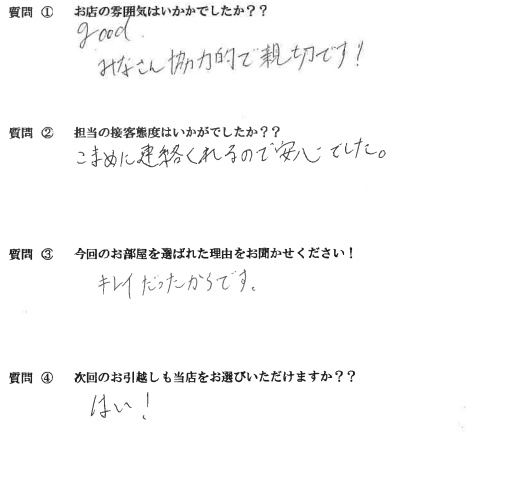 質問 ① お店の雰囲気はいかかでしたか？？
good.
みなさん協力的で親切です！
質問 ② 担当の接客態度はいかがでしたか？？
こまめに連絡くれるので安心でした。
質問 ③ 今回のお部屋を選ばれた理由をお聞かせください！
キレイだったからです。
質問 ④ 次回のお引越しも当店をお選びいただけますか？？
はい！